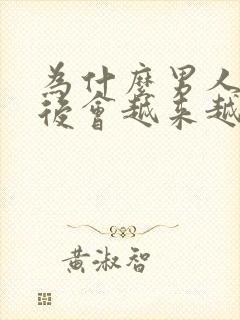 為什麼男人
後會越來越
黃淑智